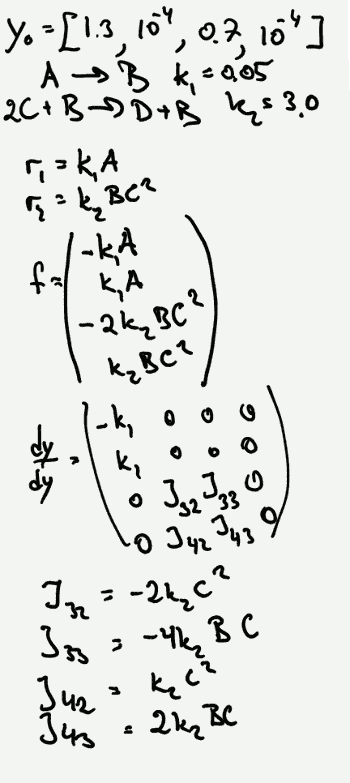 y₀ = [1.3, 10⁻⁴, 0.7, 10⁻⁴]
A → B k₁ = 0.05
2C + B → D + B k₂ = 3.0
r₁ = k₁A
r₂ = k₂BC²
f = ( -k₁A
k₁A
-2k₂BC²
k₂BC² )
dy/dy = ( -k₁ 0 0 0
k₁ 0 0 0
0 J₃₂ J₃₃ 0
0 J₄₂ J₄₃ 0 )
J₃₂ = -2k₂C²
J₃₃ = -4k₂BC
J₄₂ = k₂C²
J₄₃ = 2k₂BC